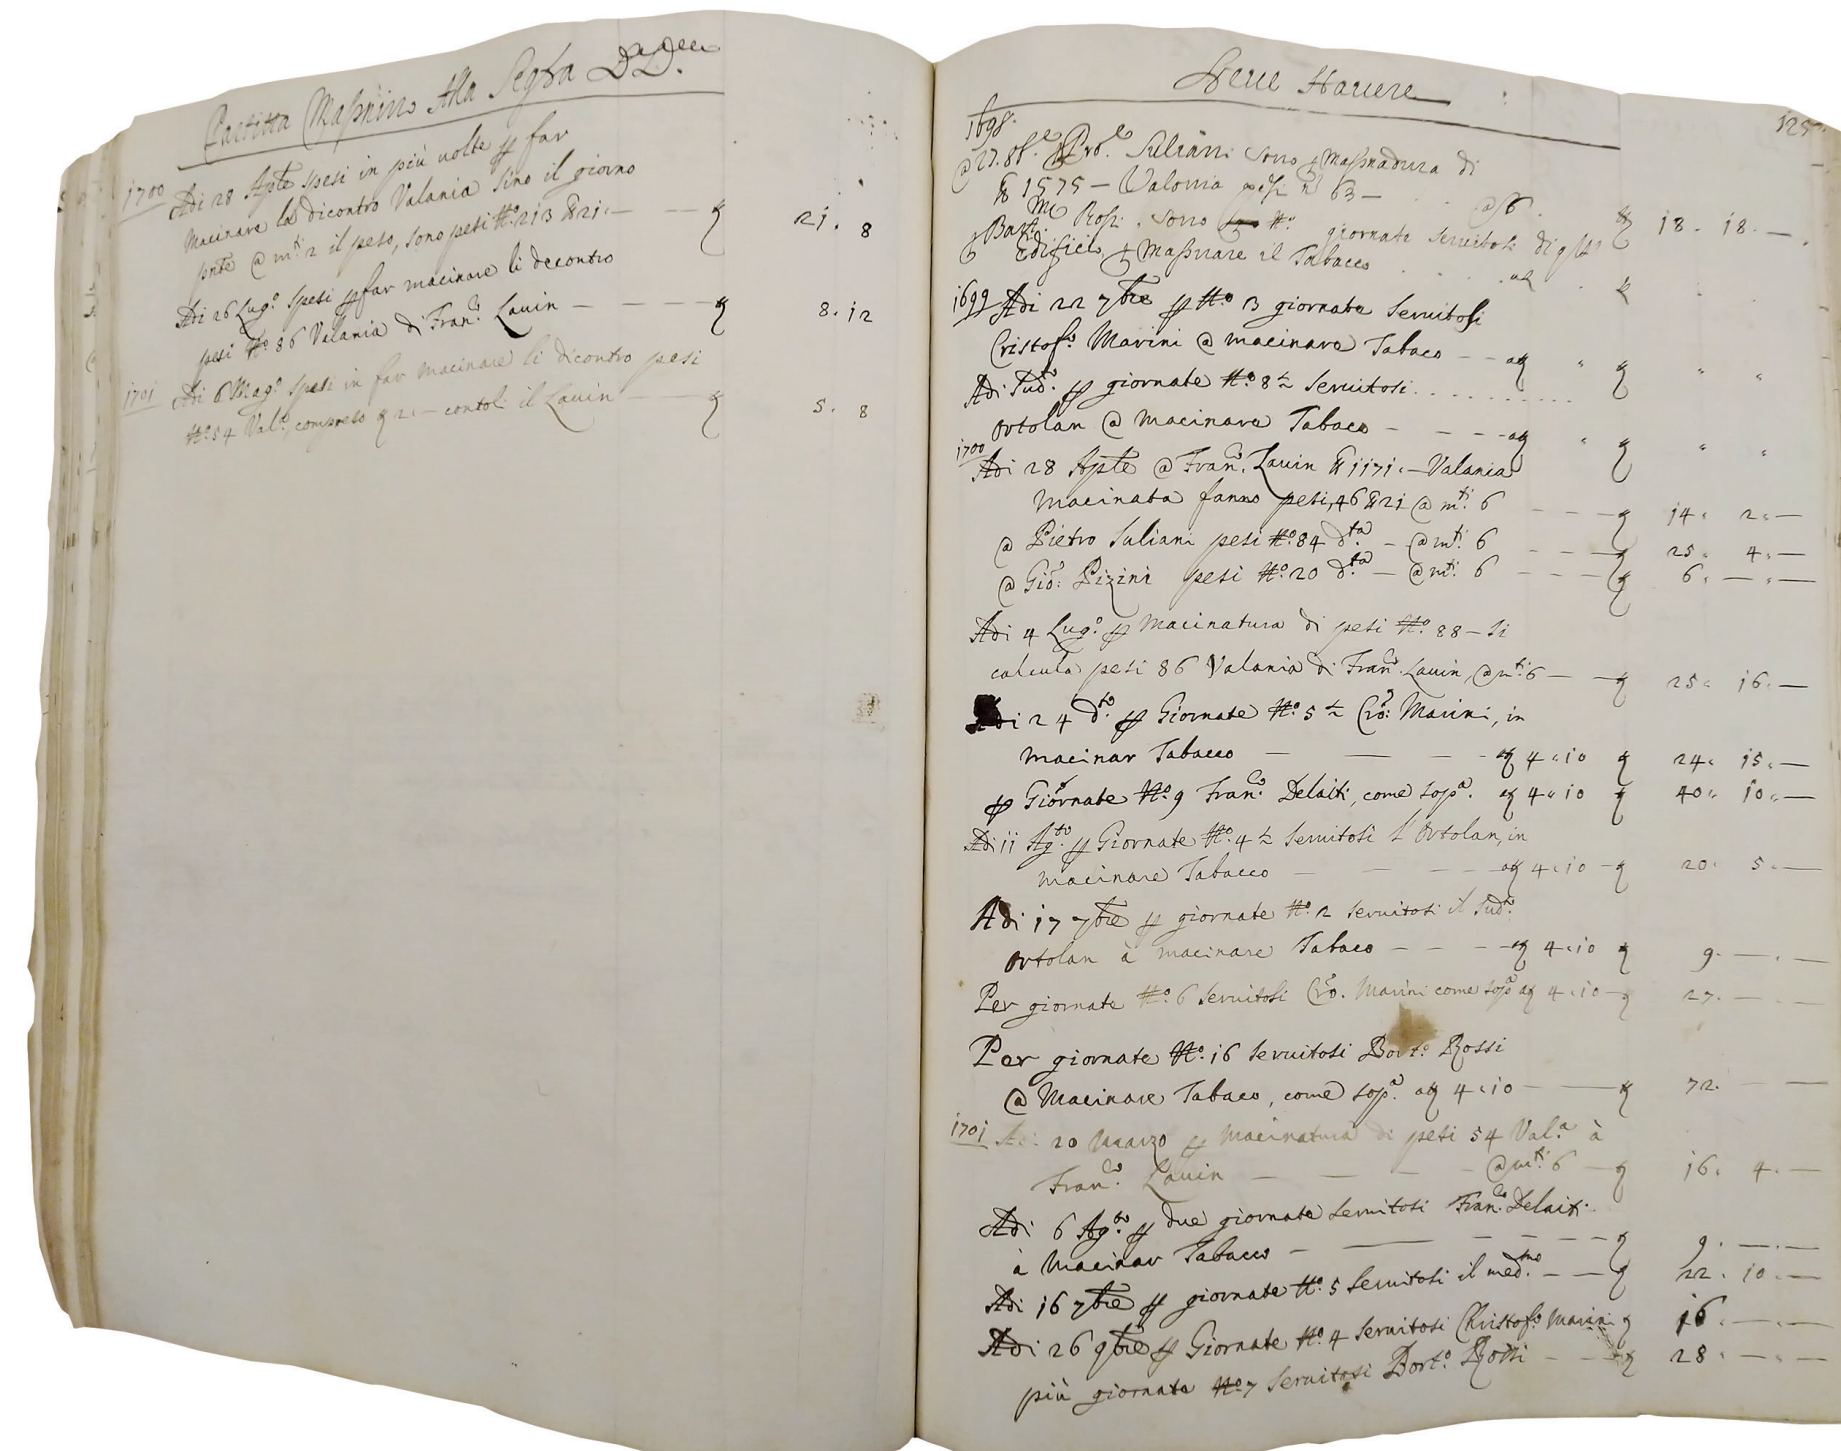 Partitta Masnino Alla Segħa
1700 Adi 28 Aple spesi in più uolte ꝑ far
macinare la dicontro Valania sino il giorno
pnte @ mti 2 il peso, sono pesi No: 213 21.— — — 21. 8
Adi 26 Lugo: spesi ꝑ far macinare li decontro
pesi No: 86 Valania di Franco: Lauin — — — — 8. 12
1701 Adi 6 Mago: spesi in far macinare li dicontro pesi
No: 54 Vala: compreso 2.— contoli il Lauin — — 5. 8
Deue Hauere
125
1698.
Suliani sono ꝑ Masnadura di
1575 — Valonia pesi n 63 — . . @ 6 . 18. 18. —
ꝑ Bart. Rossi . sono No: giornate seruitosi di
Edificio ꝑ Masnare il Tabacco . . .
1699 Adi 22 7bre ꝑ No: 13 giornate seruitosi
Cristofo: Marini @ macinare Tabaco — — " "
Adi Sudo: ꝑ giornate No: 8 ½ seruitosi . . . . . . . . . .
Ortolan @ macinare Tabaco — — — — " "
1700
Adi 28 Aple @ Franco: Lauin 1171.— Valania
macinata fanno pesi 46 21 @ mti: 6 — — — 14. 2.—
@ Pietro Suliani pesi No: 84 dta: — @ mti: 6 — — — 25. 4.—
@ Gio: Pizini pesi No: 20 dta: — @ mti: 6 — — — 6. — . —
Adi 4 Lugo: ꝑ Macinatura di pesi No: 88 — si
calcula pesi 86 Valania di Franco: Lauin, @ mti: 6 — — 25. 16.—
Adi 24 dto: ꝑ Giornate No: 5 ½ Cro: Marini, in
macinar Tabacco — — — — 4.10 24. 15.—
ꝑ Giornate No: 9 Franco: Delaiti, come sopa. 4.10 40. 10.—
Adi 11 Agto: ꝑ Giornate No: 4 ½ seruitosi l'Ortolan, in
macinare Tabacco — — — — 4.10 — 20. 5.—
Adi 17 7bre ꝑ giornate No: 2 seruitosi il Sudo:
Ortolan à macinare Tabaco — — — — 4.10 9. — . —
Per giornate No: 6 seruitosi Cro. Marini come sopa 4.10 — 27. — . —
Per giornate No: 16 seruitosi Borto: Rossi
@ Macinare Tabaco, come sopa: 4.10 — — 72. —
1701 Adi 20 Marzo ꝑ Macinatura di pesi 54 Vala: à
Franco: Lauin — — — — @ mti: 6 — 16. 4.—
Adi 6 Agto: ꝑ due giornate seruitosi Franco: Delaiti
à Macinar Tabacco — — — — — 9. — . —
Adi 16 7bre ꝑ giornate No: 5 seruitosi il medmo: — — 22. 10.—
Adi 26 9bre ꝑ Giornate No: 4 seruitosi Christofo: Marini 16. — . —
più giornate No: 7 seruitosi Borto: Rossi — — — 28. — . —